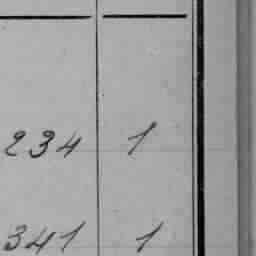 234 1
341 1